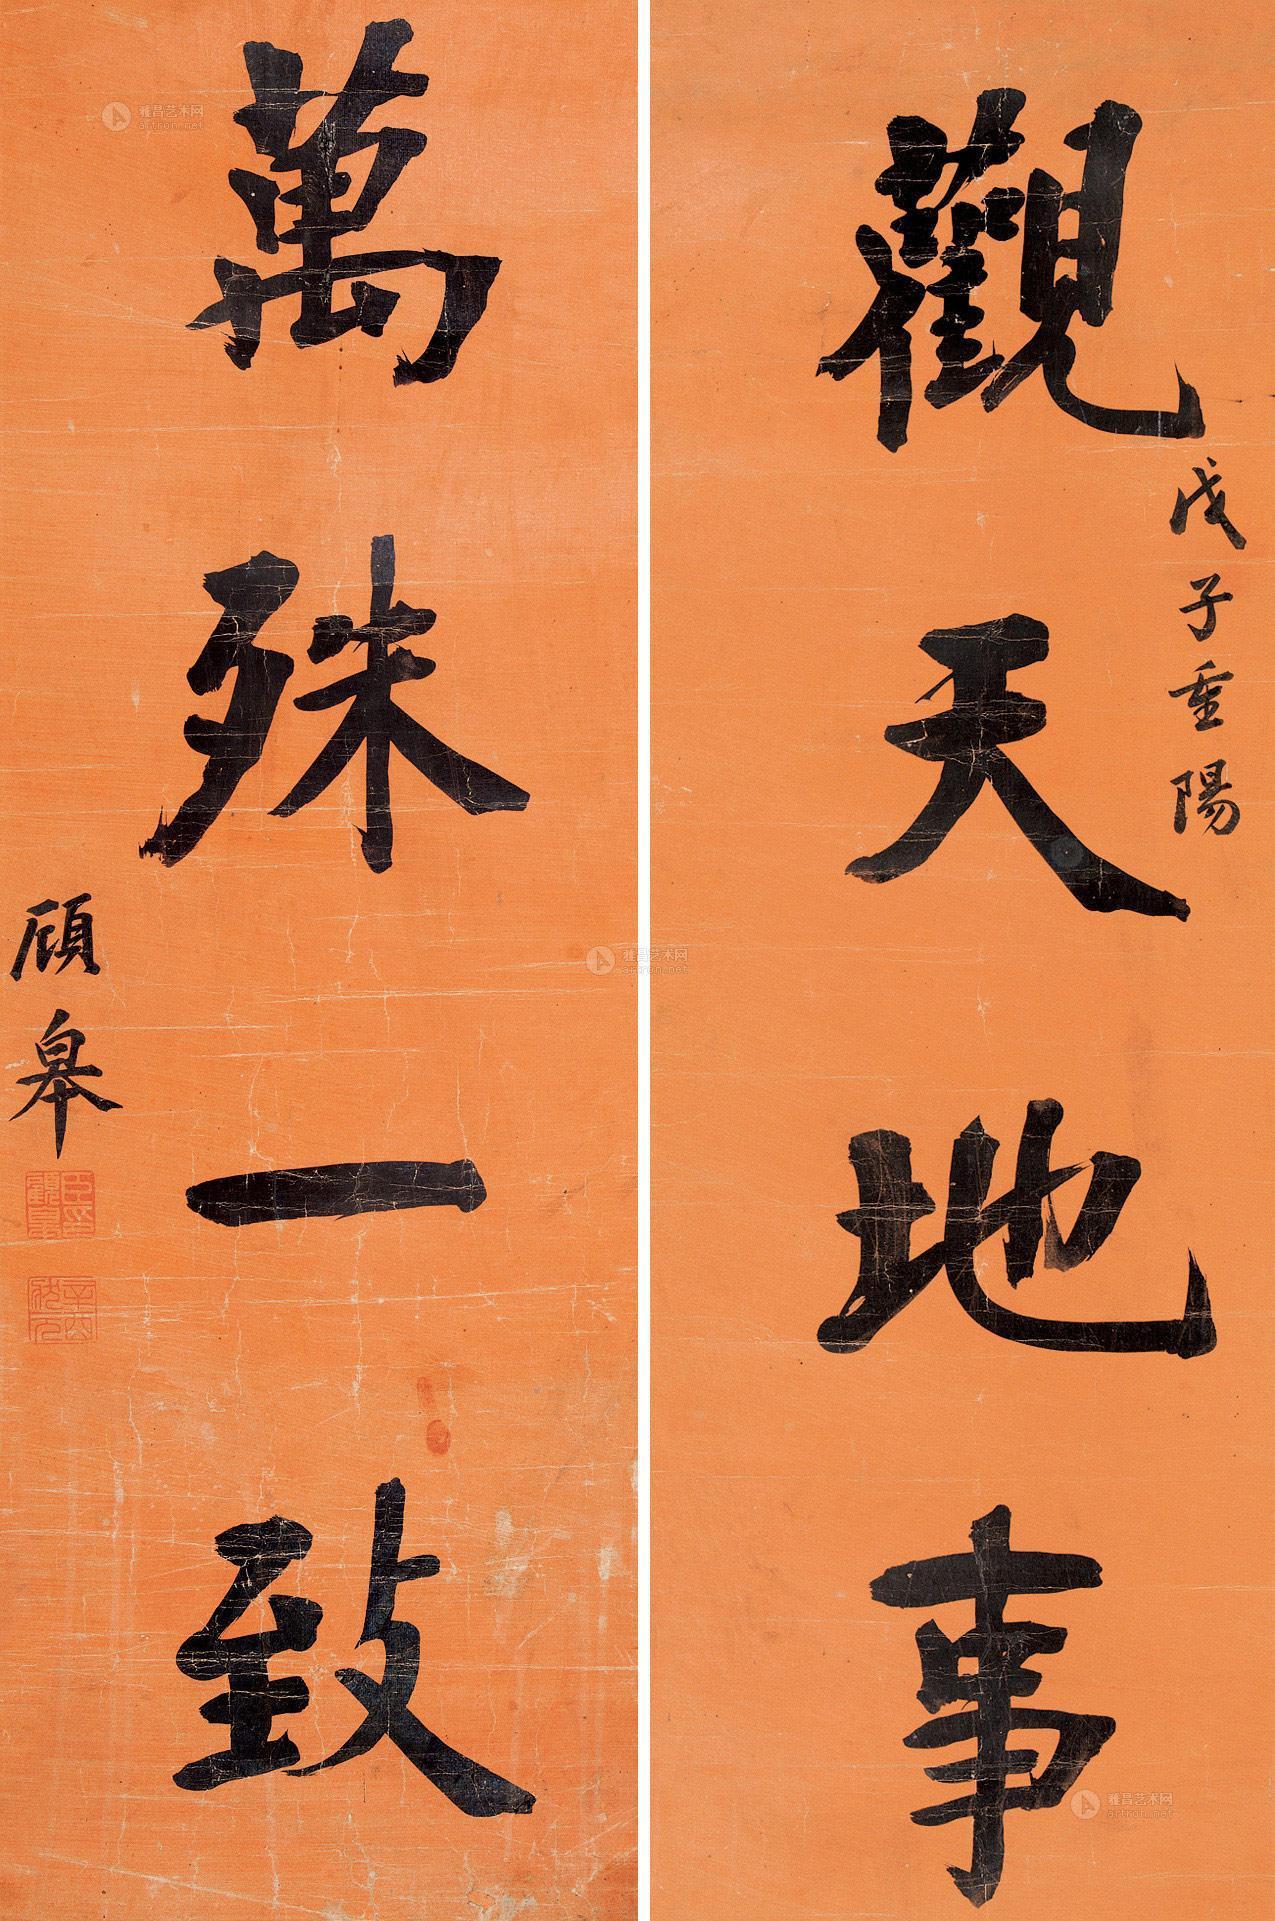 觀天地事
戊子重陽
萬殊一致
顧皋
雅昌艺术网
artron.net
雅昌艺术网
artron.net
雅昌艺术网
artron.net